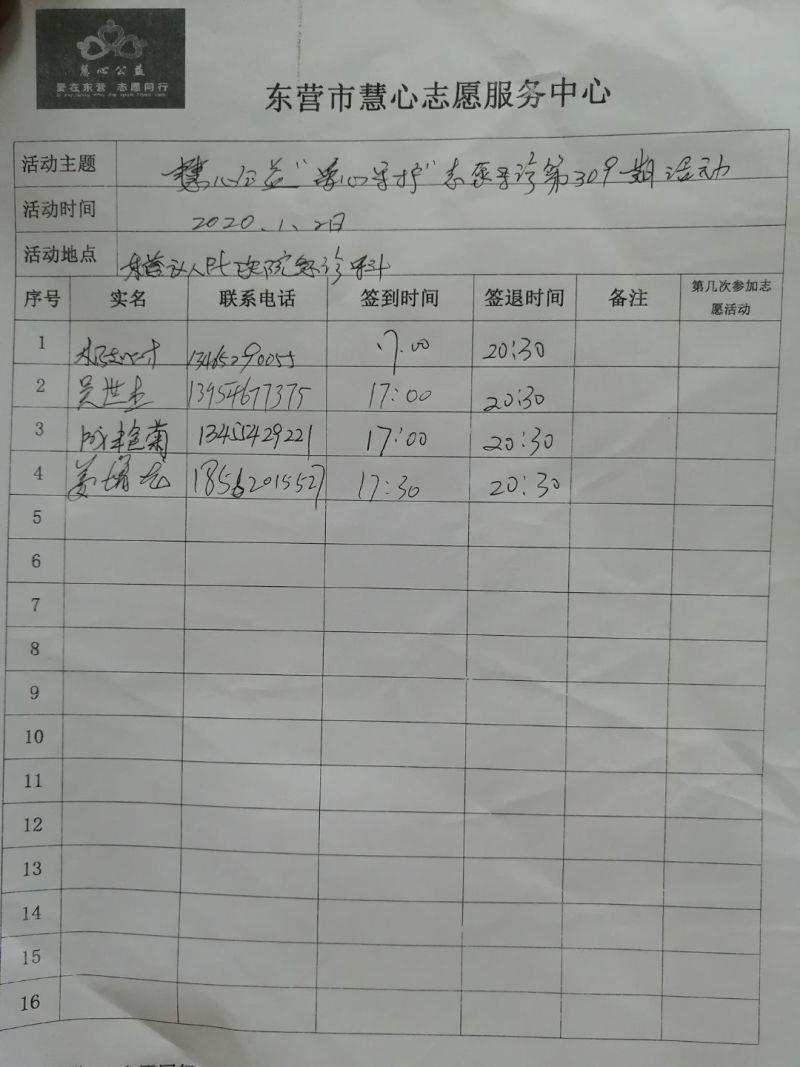 慧心公益
爱在东营 志愿同行
东营市慧心志愿服务中心
活动主题 慧心公益"爱心守护"志愿导诊第309期活动
活动时间 2020.1.2日
活动地点 东营区人民医院急诊科
序号 实名 联系电话 签到时间 签退时间 备注 第几次参加志愿活动
1 13465290055 17.00 20:30
2 吴世杰 13954677375 17:00 20:30
3 13455429221 17:00 20:30
4 18562015527 17:30 20:30
5
6
7
8
9
10
11
12
13
14
15
16